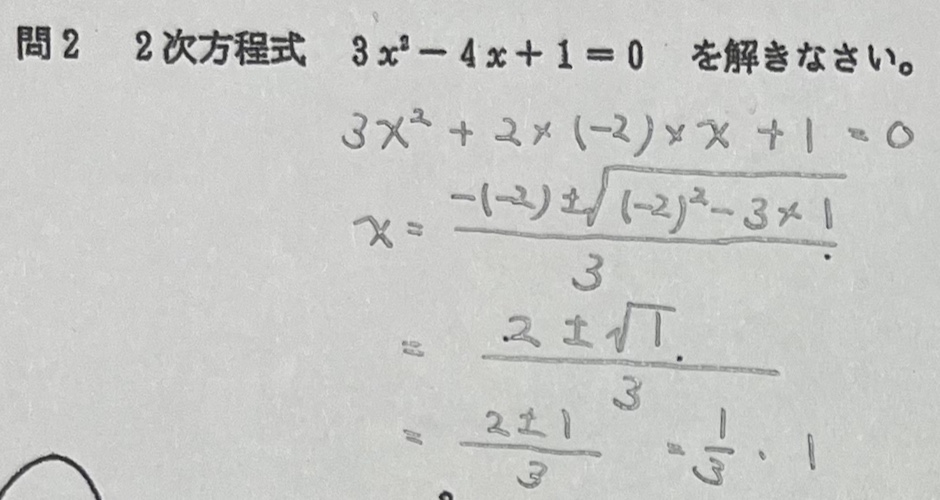 問2 2次方程式 3x²－4x＋1＝0 を解きなさい。
3x² + 2×(-2)×x + 1 = 0
x = (-(-2)±√((-2)²-3×1))/3
= (2±√1)/3
= (2±1)/3 = 1/3 . 1